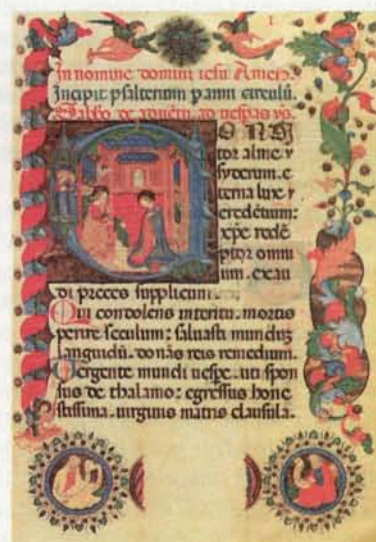 I
In nomine domini iesu Amen.
Incipit psalterium p anni circulū
Sabbō de advētu. ad uespas ys.
ONDI
tor alme ꝛ
syderum. e
terna lux ꝛ
credētium:
xp̄e redē
ptor omni
um. exau
di preces supplicum
Qui condolens interitu. mortis
perire seculum: saluasti mundū
languidū. donās reis remedium.
Vergente mundi uespe. uti spon
sus de thalamo: egressus hone
stissima. uirginis matris clausula.